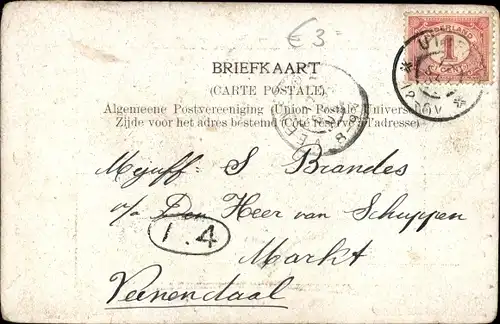 €3
NEDERLAND
1
BRIEFKAART
(CARTE POSTALE)
Algemeene Postvereeniging (Union Postale Universelle)
Zijde voor het adres bestemd (Côté réservé à l'adresse)
Mejuff: S Brandes
p/a Den Heer van Schuppen
1.4
Markt
Veenendaal